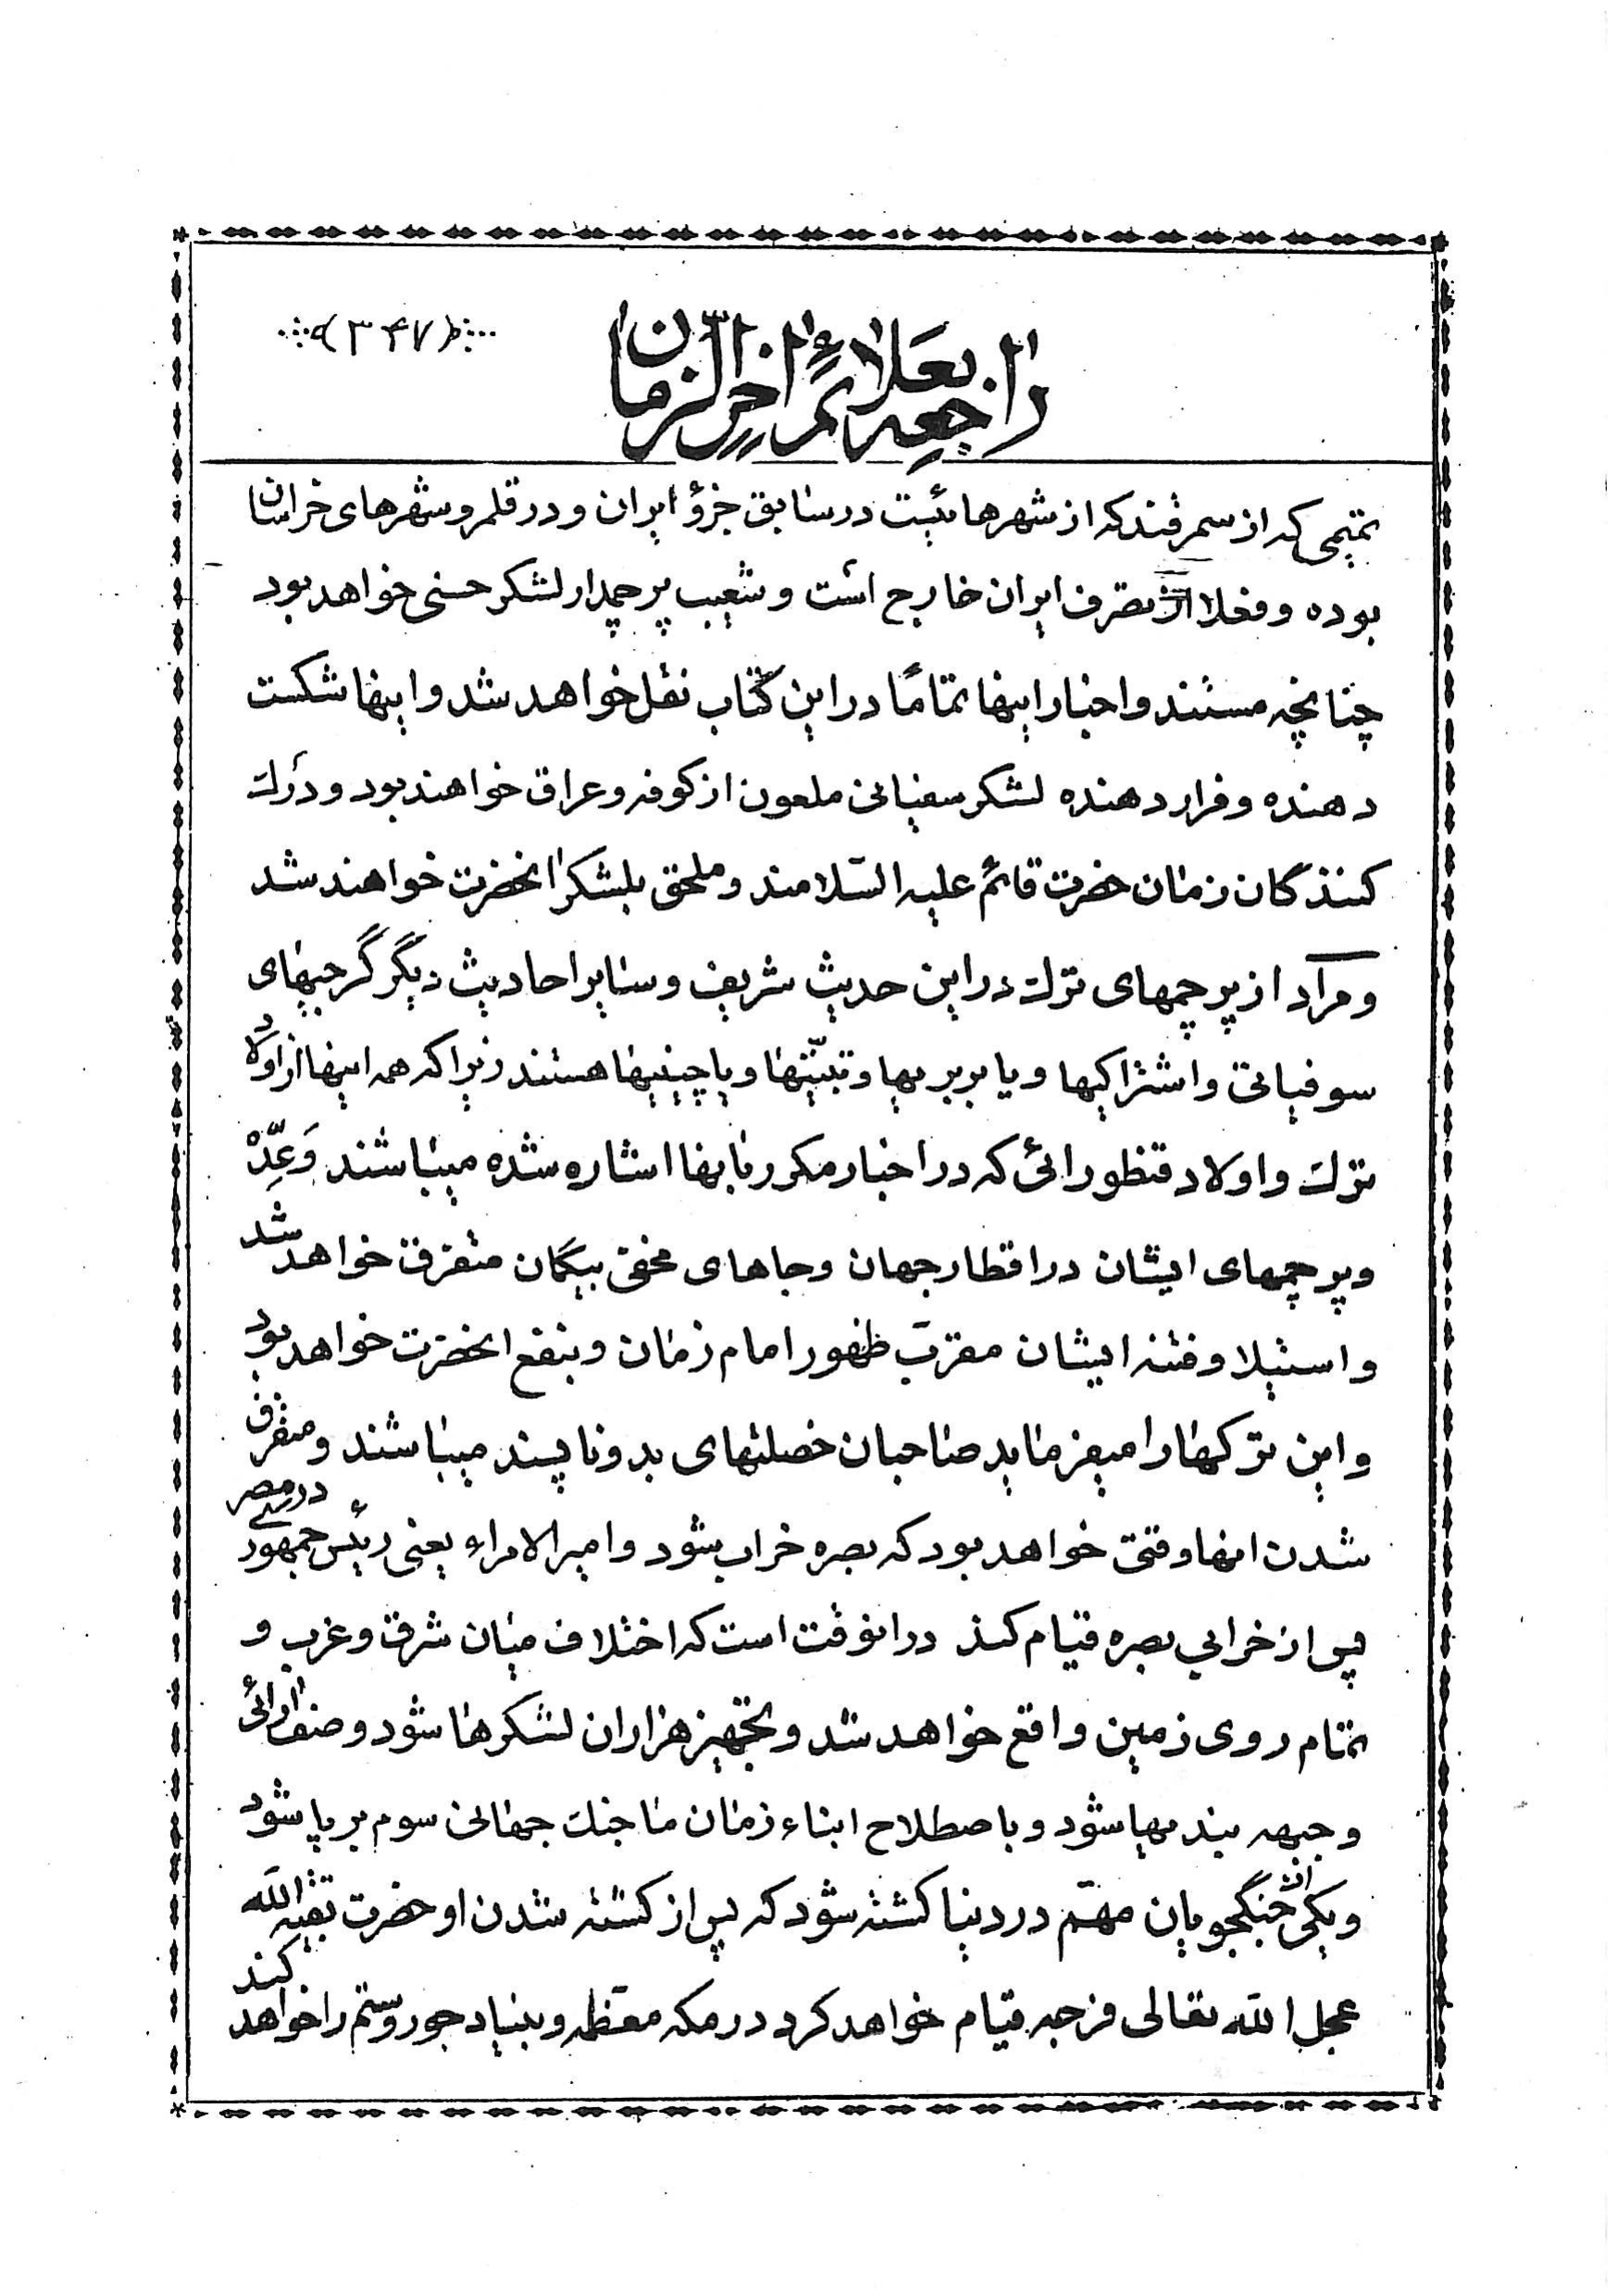 (۳۴۷)
راجعه بعلائم اخر الزمان
تمیمی که از سمرقند که از شهرهائیست در سابق جزؤ ایران و در قلمرو شهرهای خراسان
بوده و فعلا از تصرف ایران خارج است و شعیب پرچمدار لشکر حسنی خواهد بود
چنانچه مستند و اخبار اینها تمامًا در این کتاب نقل خواهد شد و اینها شکست
دهنده و فرار دهنده لشکر سفیانی ملعون از کوفه و عراق خواهند بود و درك
کنندگان زمان حضرت قائم علیه السّلامند و ملحق بلشکر انحضرت خواهند شد
و مراد از پرچمهای ترك در این حدیث شریف و سایر احادیث دیگر گرجیهای
سوفیاتی و اشتراکیها و یا بربریها و تبتّیها و یا چینیها هستند زیرا که همه اینها از اولاد
ترك و اولاد قنطورائی که در اخبار مکرر باینها اشاره شده میباشند وَعِدّهْ
و پرچمهای ایشان در اقطار جهان و جاهای مخفی بیگمان متفرق خواهد شد
و استیلا و فتنه ایشان مقرّب ظهور امام زمان و بنفع انحضرت خواهد بود
و این ترکها را میفرماید صاحبان خصلتهای بد و ناپسند میباشند و متفرق
شدن انها وقتی خواهد بود که بصره خراب شود و امیر الامراء یعنی رئیس جمهوری در مصر
پس از خرابی بصره قیام کند در انوقت است که اختلاف میان شرق و غرب و
تمام روی زمین واقع خواهد شد و تجهیز هزاران لشکرها شود و صف ارائی
و جبهه بندیها شود و باصطلاح ابناء زمان ما جنك جهانی سوم بر پا شود
و یکی از جنگجویان مهّم در دنیا کشته شود که پس از کشته شدن او حضرت بقیة الله
عجل الله تعالی فرجه قیام خواهد کرد در مکه معظمه و بنیاد جور و ستم را خواهد کند